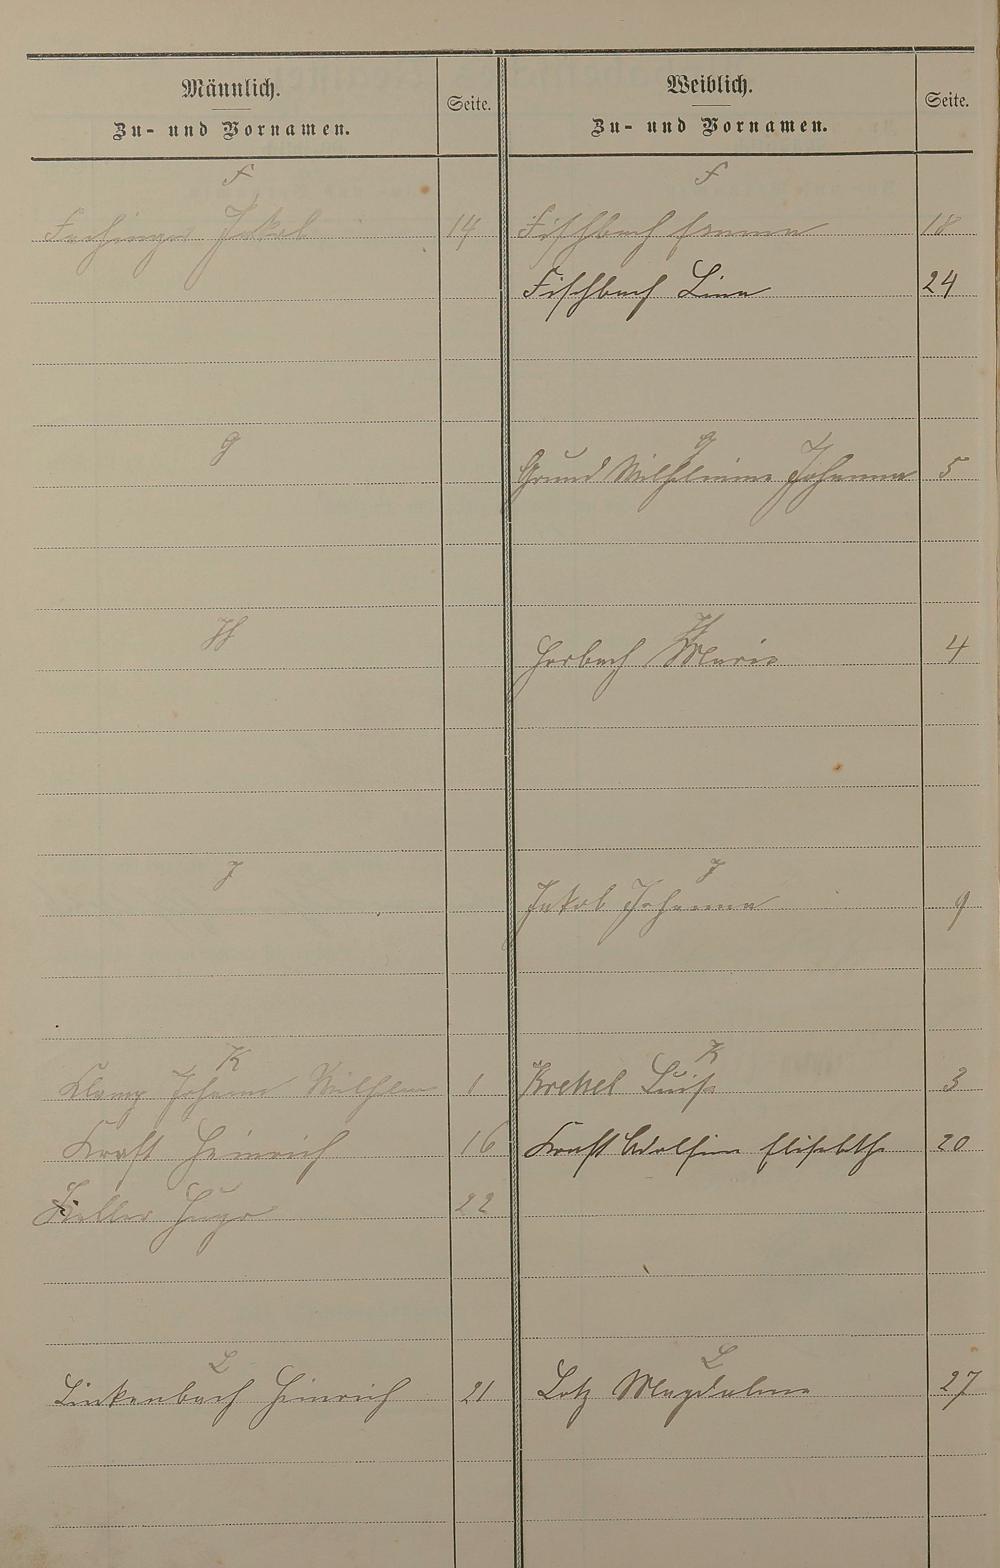 Männlich.
Zu- und Vornamen.
Seite.
Weiblich.
Zu- und Vornamen.
Seite.
F
F
Fachinger Jakob 14
Fischbach Emma 18
Fischbach Lina 24
G
G
Grund Wilhelmine Johanna 5
H
H
Horbach Marie 4
J
J
Jakob Johanna 9
K
K
Klamp Johann Wilhelm 1
Krekel Luise 3
Kraft Heinrich 16
Kraft Adolfine Elisabethe 20
Keller Hugo 22
L
L
Linkenbach Heinrich 21
Lotz Magdalena 27